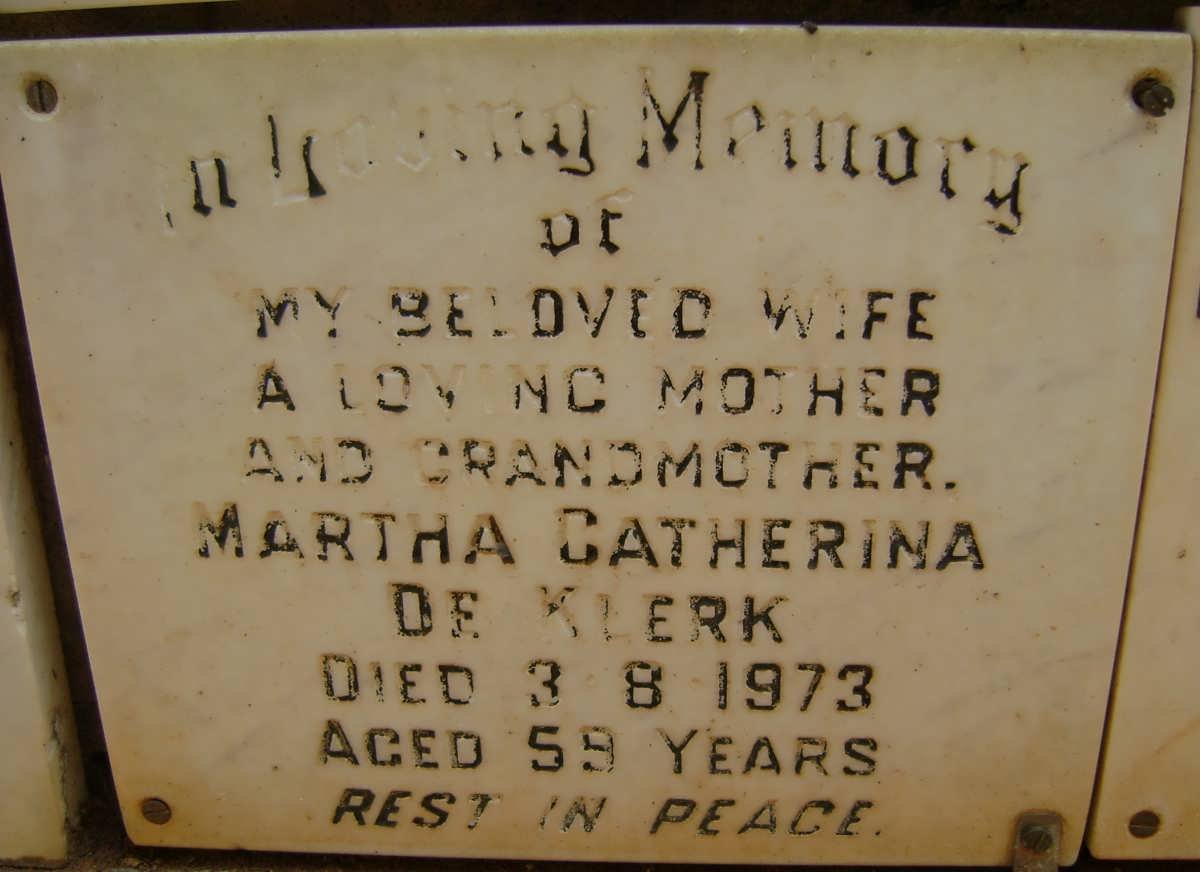 In Loving Memory
of
MY BELOVED WIFE
A LOVING MOTHER
AND GRANDMOTHER.
MARTHA CATHERINA
DE KLERK
DIED 3 8 1973
AGED 59 YEARS
REST IN PEACE.